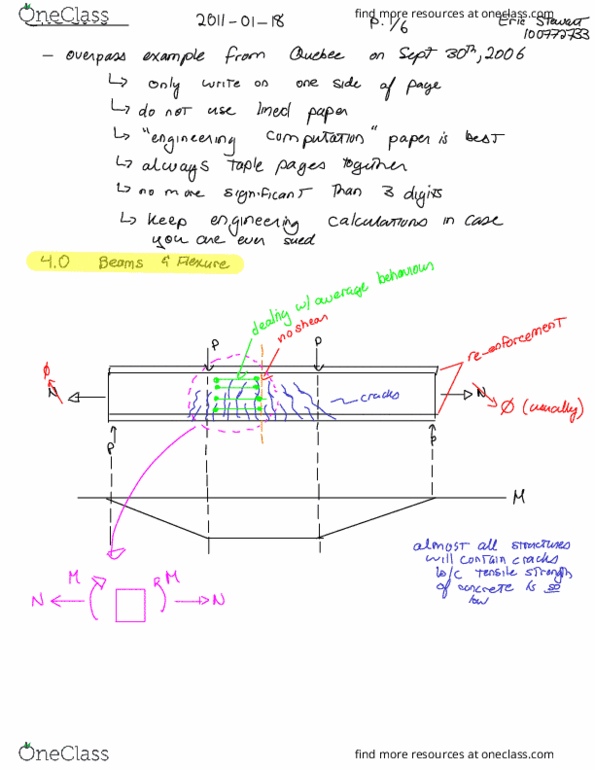 OneClass
find more resources at oneclass.com
2011-01-18
P. 1/6
Eric Stewart
100772733
- overpass example from Quebec on Sept 30th, 2006
↳ only write on one side of page
↳ do not use lined paper
↳ "engineering computation" paper is best
↳ always staple pages together
↳ no more significant than 3 digits
↳ keep engineering calculations in case
you are ever sued
4.0 Beams & Flexure
dealing w/ average behaviour
no shear
re-enforcement
P
P
Ø
N
cracks
N
Ø (usually)
P
P
M
almost all structures
will contain cracks
b/c tensile strength
of concrete is so
low
M
M
N
N
OneClass
find more resources at oneclass.com